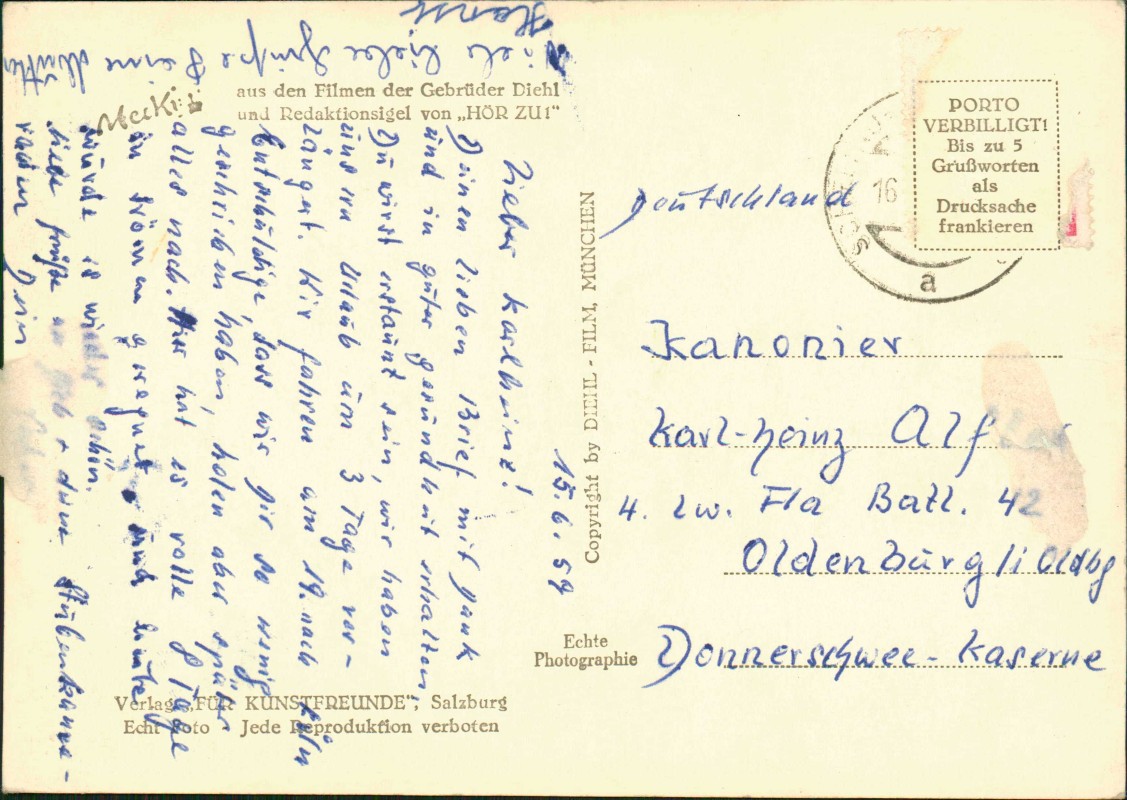 Mecki
aus den Filmen der Gebrüder Diehl
und Redaktionsigel von „HÖR ZU!"
15.6.59
Lieber Karlheinz!
Deinen lieben Brief mit Dank
und in guter Gesundheit erhalten,
Du wirst erstaunt sein, wir haben
unseren Urlaub um 3 Tage ver-
längert. Wir fahren am 19. nach Köln
Entschuldige dass wir Dir so wenig
geschrieben haben, holen aber später
alles nach. Hier hat es volle 8 Tage
in Strömen geregnet und heute
wurde es wieder schön.
Liebe Grüße an + deine Stubenkame-
raden Dein
Viele Liebe Grüße Deine Mutter
Verlag „FÜR KUNSTFREUNDE", Salzburg
Echt Foto - Jede Reproduktion verboten
Copyright by DIEHL - FILM, MÜNCHEN
Echte
Photographie
PORTO
VERBILLIGT!
Bis zu 5
Grußworten
als
Drucksache
frankieren
16
a
Deutschland
Kanonier
Karl-Heinz Alf
4. Lw. Fla Batl. 42
Oldenburg/i Oldbg
Donnerschwee-Kaserne